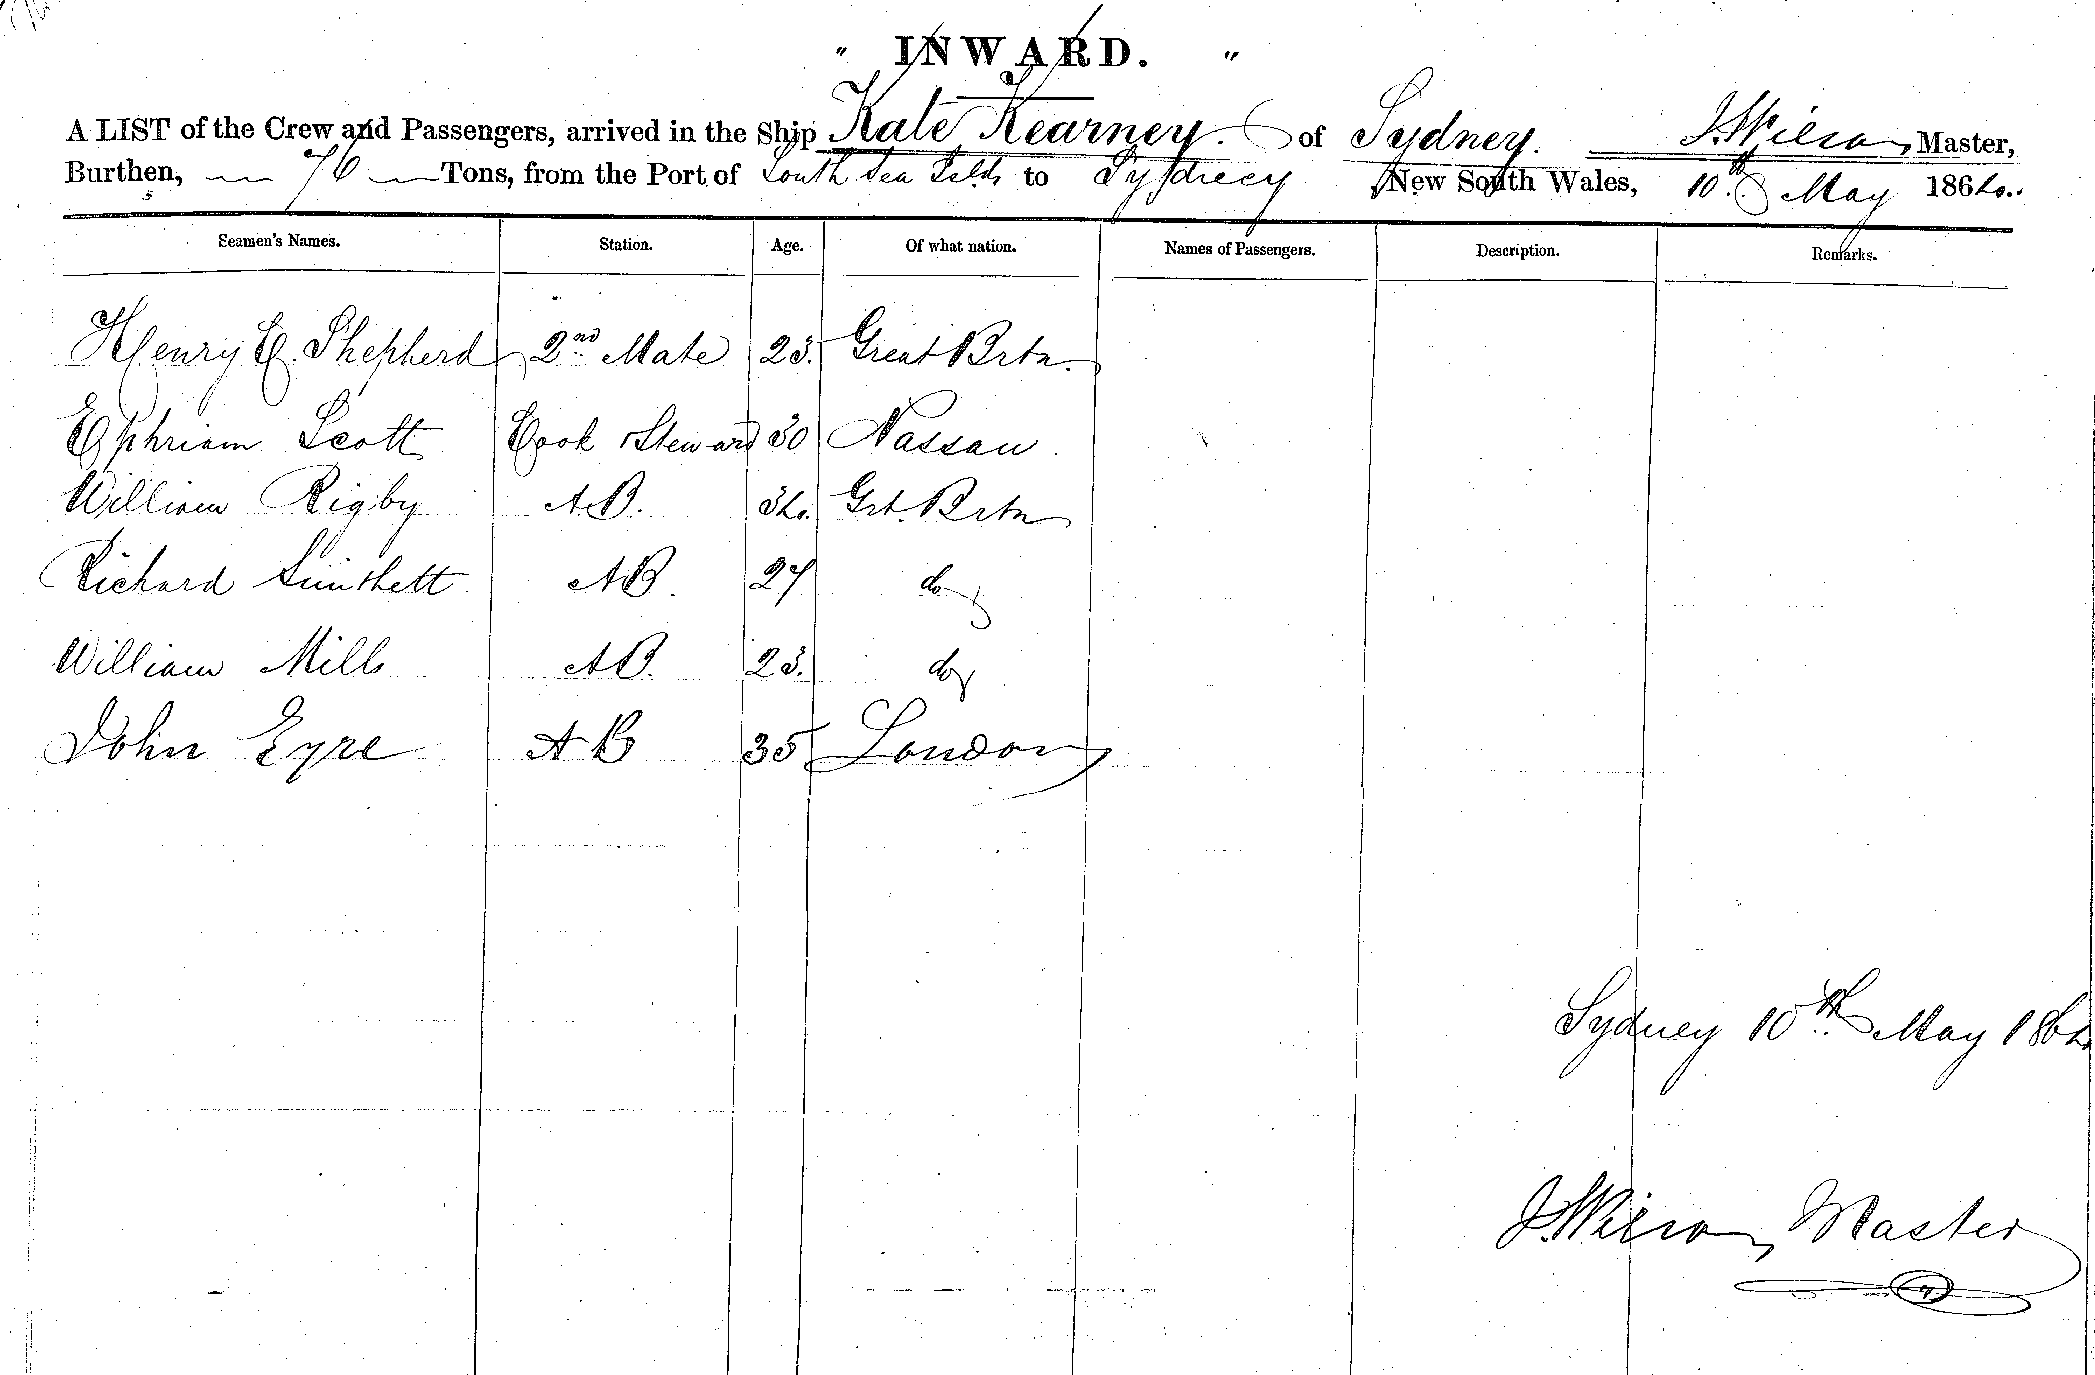 " INWARD. "
A LIST of the Crew and Passengers, arrived in the Ship Kate Kearney. of Sydney. J. Wilson Master,
Burthen, 76 Tons, from the Port of South Sea Islds to Sydney New South Wales, 10th May 1864..
Seamen's Names. Station. Age. Of what nation. Names of Passengers. Description. Remarks.
Henry C. Shepherd 2nd Mate 23. Great Brtn.
Ephriam Scott Cook Steward 30 Nassau.
William Rigby AB. 34. Grt. Brtn
Richard AB. 27 do
William Mills AB. 23. do
John Eyre AB 35 London
Sydney 10th May 1864
J. Wilson Master